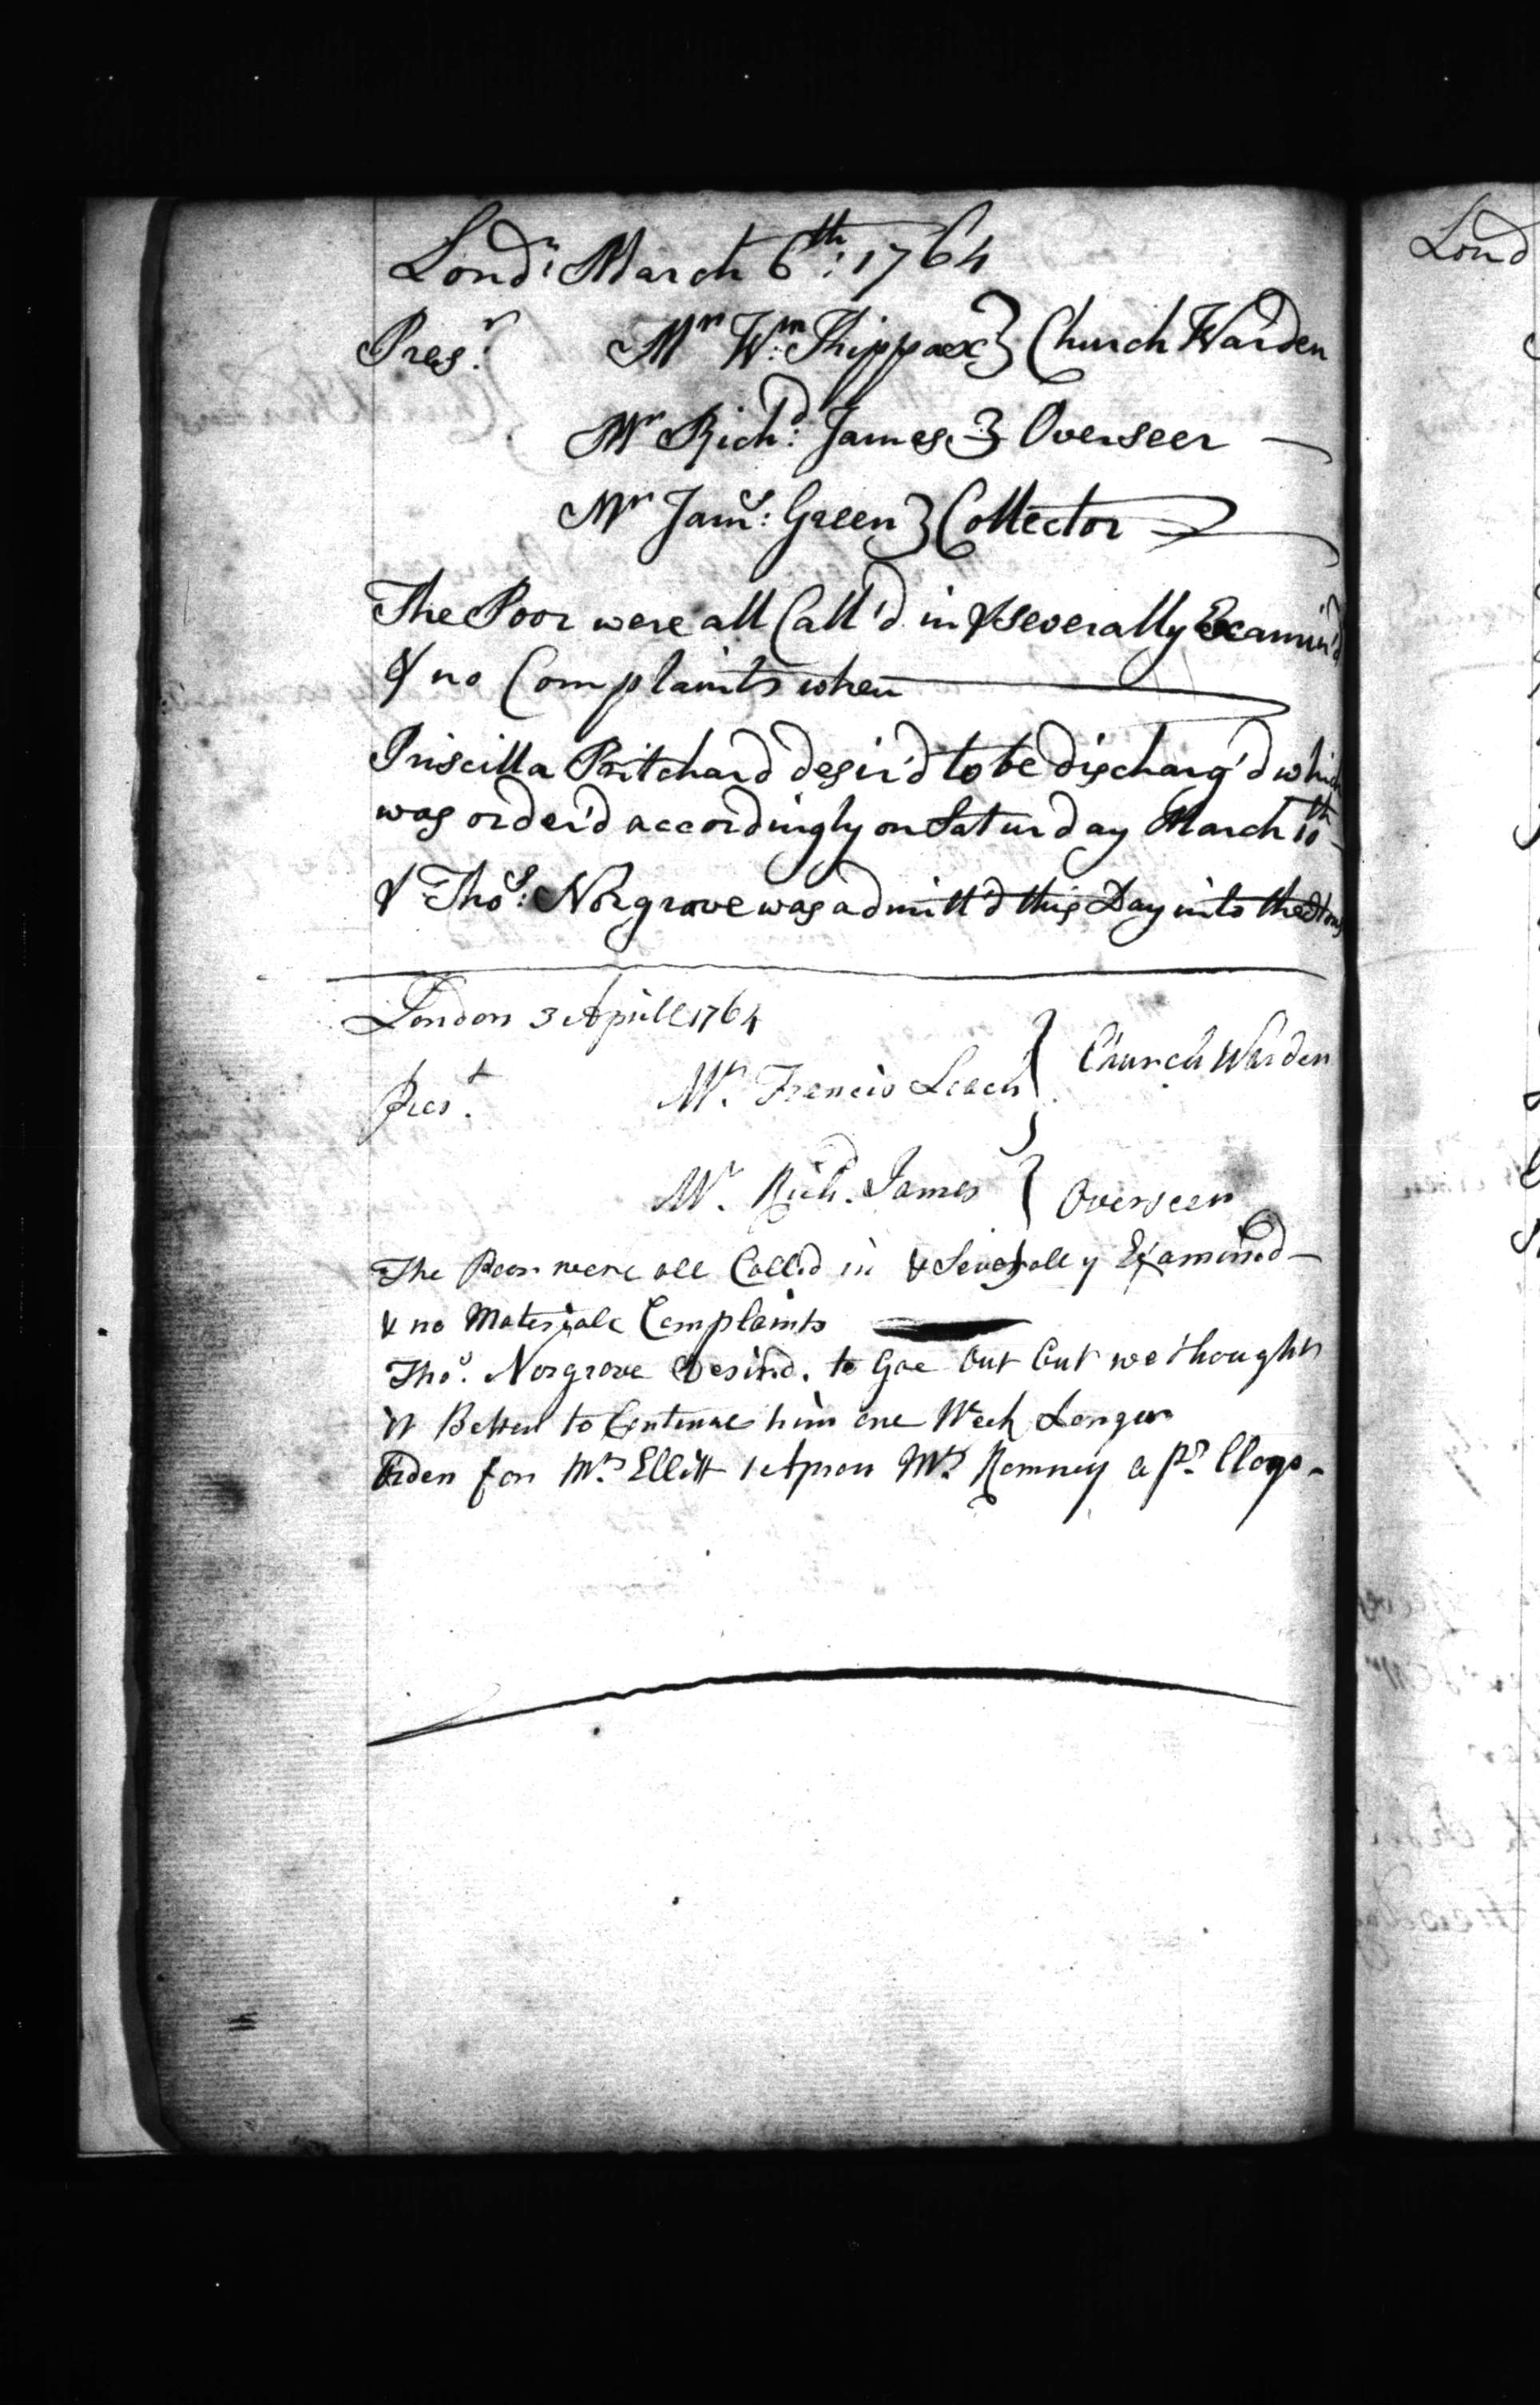 Lond: March 6th: 1764
Pres:r Mr Wm: Phippax } Church Warden
Mr Richd: James } Overseer
Mr Jams: Green } Collector
The Poor were all Call'd in & severally Examin'd
& no Complaints when
Priscilla Pritchard desir'd to be discharg'd which
was order'd accordingly on Saturday March 10th
& Thos: Norgrove was admitt'd this Day into the
London 3 Aprill 1764
Prest. Mr. Francis Leach } Church Warden
Mr. Richd. James } Overseer
The Poor were all Called in & Severally Examined
& no Materiale Complaints
Thos. Norgrove Desird. to Goe Out but we thought
it Better to Contenue him one Week Longer
Order for Mrs Ellitt 1 Apron Mrs Romney a pr. Clogs
Lond